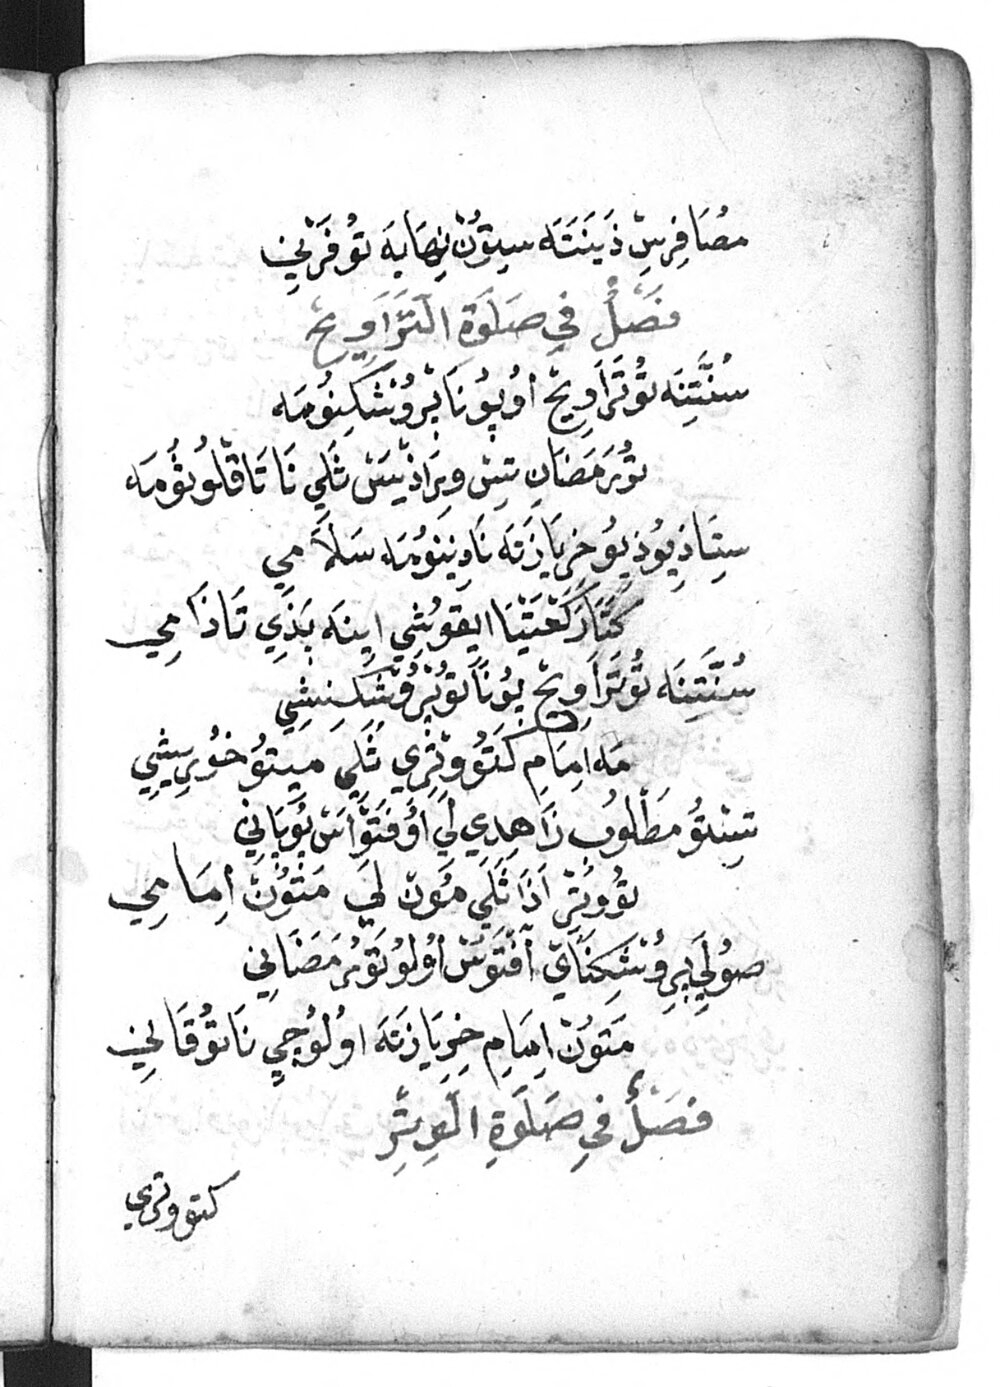 مُصَافِرِسْ ذَيَنَتَه سِتِوُنْ نِصَايَه تُوفَرَنِي
فَصْلٌ فِي صَلَوةِ التَّرَاوِيحْ
سُنَّتِنَه تُوتَرَاوِيحْ اوُپوُنَا پْرُوشَكِنوُمَه
تُورَمَضَانِ تِسْ وِرَاذِيَسْ ثَلِي نَا تَاقْلُوثُومَه
سِتَاذِيُوذِيُو خِرِيَازَتَه نَادِينُومَه سَلَامِي
كَتَارَكَعَتْيَا ايقوُشِي اِينَه بَذَي تَاذَامِي
سُنَّتِنَه تُوتَرَاوِيحْ پوُنَاتُوپْرُوشَكِنِشِي
مَه اِمَامِ كَتُووِتْرِي ثَلِي مِيتُو خُورِيشِي
تِيْتُو مَطْلُوبْ زَاهِدِي لَي اَوُفَتَوَاسْ پُويَانِي
تُووِتْرِ اَذَا ثَلِي مُونْ لَي مَتُونْ اِمَامِي
صوُلَي پْرُوشَكِنَايْ آفْتَوسْ اوُلُو تُورَمَضَانِي
مَتوُنْ اِمَامِ خِرِيَازَتَه اوُلوُچِي نَاتُوقَانِي
فَصْلٌ فِي صَلَوةِ الْوِتْرِ
كتووترى